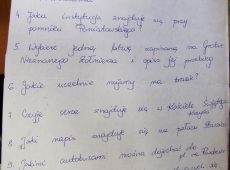 4. Jaka instytucja znajduje się przy
pomniku Poniatowskiego?
5. Wybierz jedną bitwę zapisaną na Grobie
Nieznanego Żołnierza i opisz jej przebieg
6. Jakie uczelnie mijamy na trasie?
7. Czyje serce znajduje się w Kościele Świętego
Krzyża
8. Jaki napis znajduje się na pałacu Staszica
9. Jakimi autobusami można dojechać do
pl.